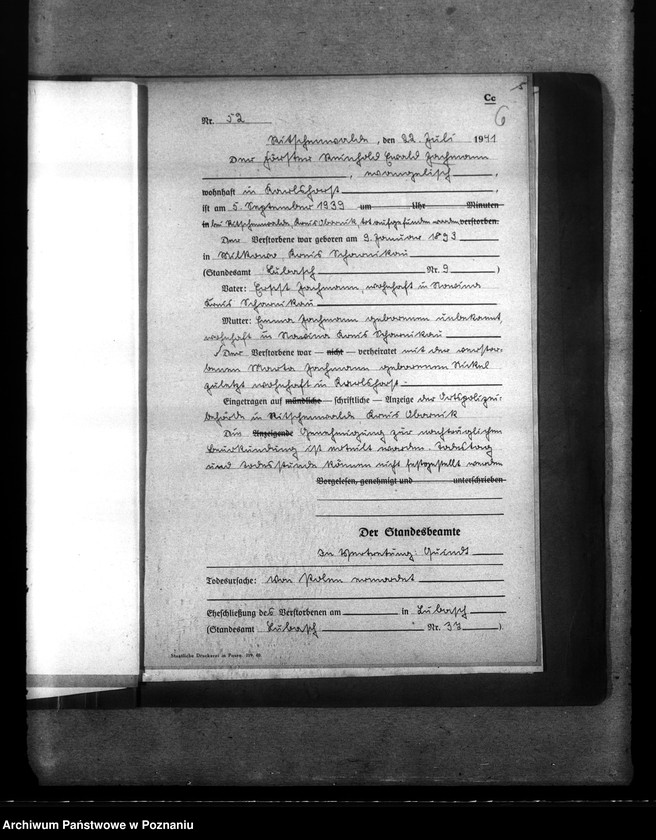 Cc
5
6
Nr. 52
Ritschenwalde, den 22. Juli 1941
Der Förster Reinhold Ewald Jachmann
, evangelisch,
wohnhaft in Karlshorst,
ist am 5. September 1939 um Uhr Minuten
in bei Ritschenwalde, Kreis Obornik, tot aufgefunden worden verstorben.
Der Verstorbene war geboren am 9. Januar 1893
in Milkowo, Kreis Scharnikau
(Standesamt Lubasch Nr. 9)
Vater: Ernst Jachmann, wohnhaft in
Kreis Scharnikau
Mutter: Emma Jachmann geborenen unbekannt,
wohnhaft in Kreis Scharnikau
Der Verstorbene war — nicht — verheiratet mit der verstor-
benen Marta Jachmann geborenen Nickel
zuletzt wohnhaft in Karlshorst.
Eingetragen auf mündliche — schriftliche — Anzeige der Ortspolizei-
behörde in Ritschenwalde Kreis Obornik
Die Anzeigende Genehmigung zur nachträglichen
Beurkundung ist erteilt worden. Todestag
und Todesstunde können nicht festgestellt werden
Vorgelesen, genehmigt und unterschrieben
Der Standesbeamte
In Vertretung:
Todesursache: Von Polen ermordet
Eheschließung des Verstorbenen am in Lubasch
(Standesamt Lubasch Nr. 37)
Staatliche Druckerei in Posen.
Archiwum Państwowe w Poznaniu